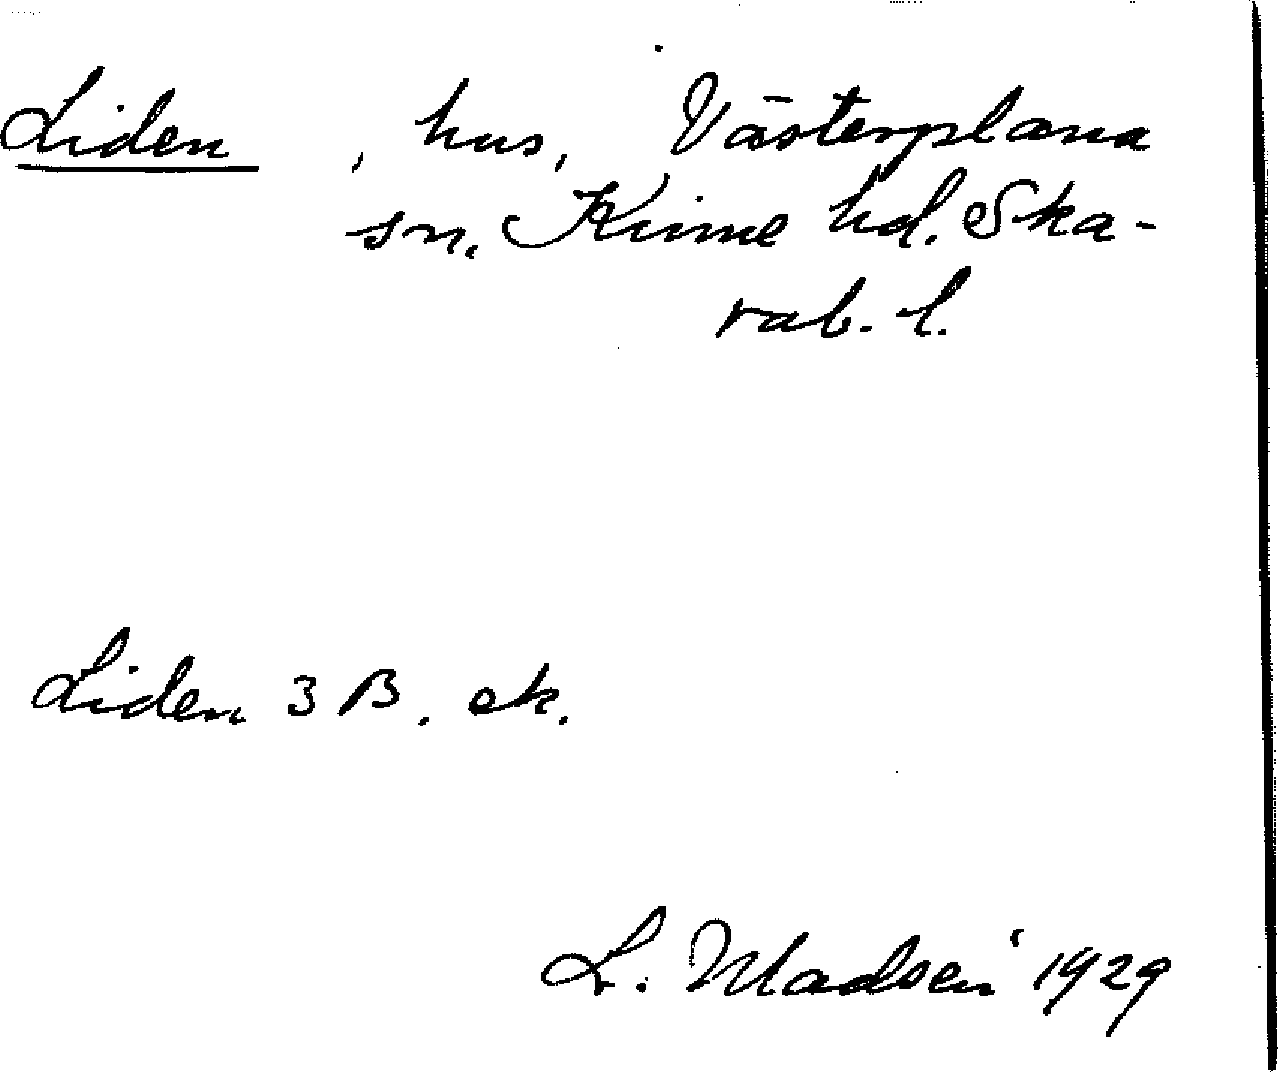 Liden, hus, Västerplana
sn, Kinne hd. Ska-
rab. l.
Liden 3 B. ek.
L. Madsen 1929